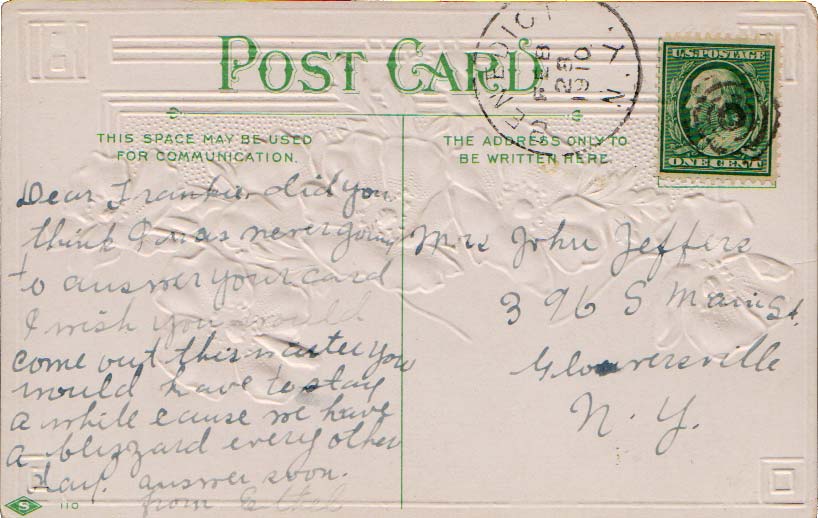 POST CARD
BENEDICT N.Y.
FEB
28
1910
U.S. POSTAGE
ONE CENT
THIS SPACE MAY BE USED
FOR COMMUNICATION.
THE ADDRESS ONLY TO
BE WRITTEN HERE
Dear Frankie did you
think I was never going
to answer your card
I wish you would
come out this winter you
would have to stay
a while cause we have
a blizzard every other
day. answer soon.
from Ethel
Mrs John Jeffers
396 S Main St.
Gloversville
N. Y.
S
110